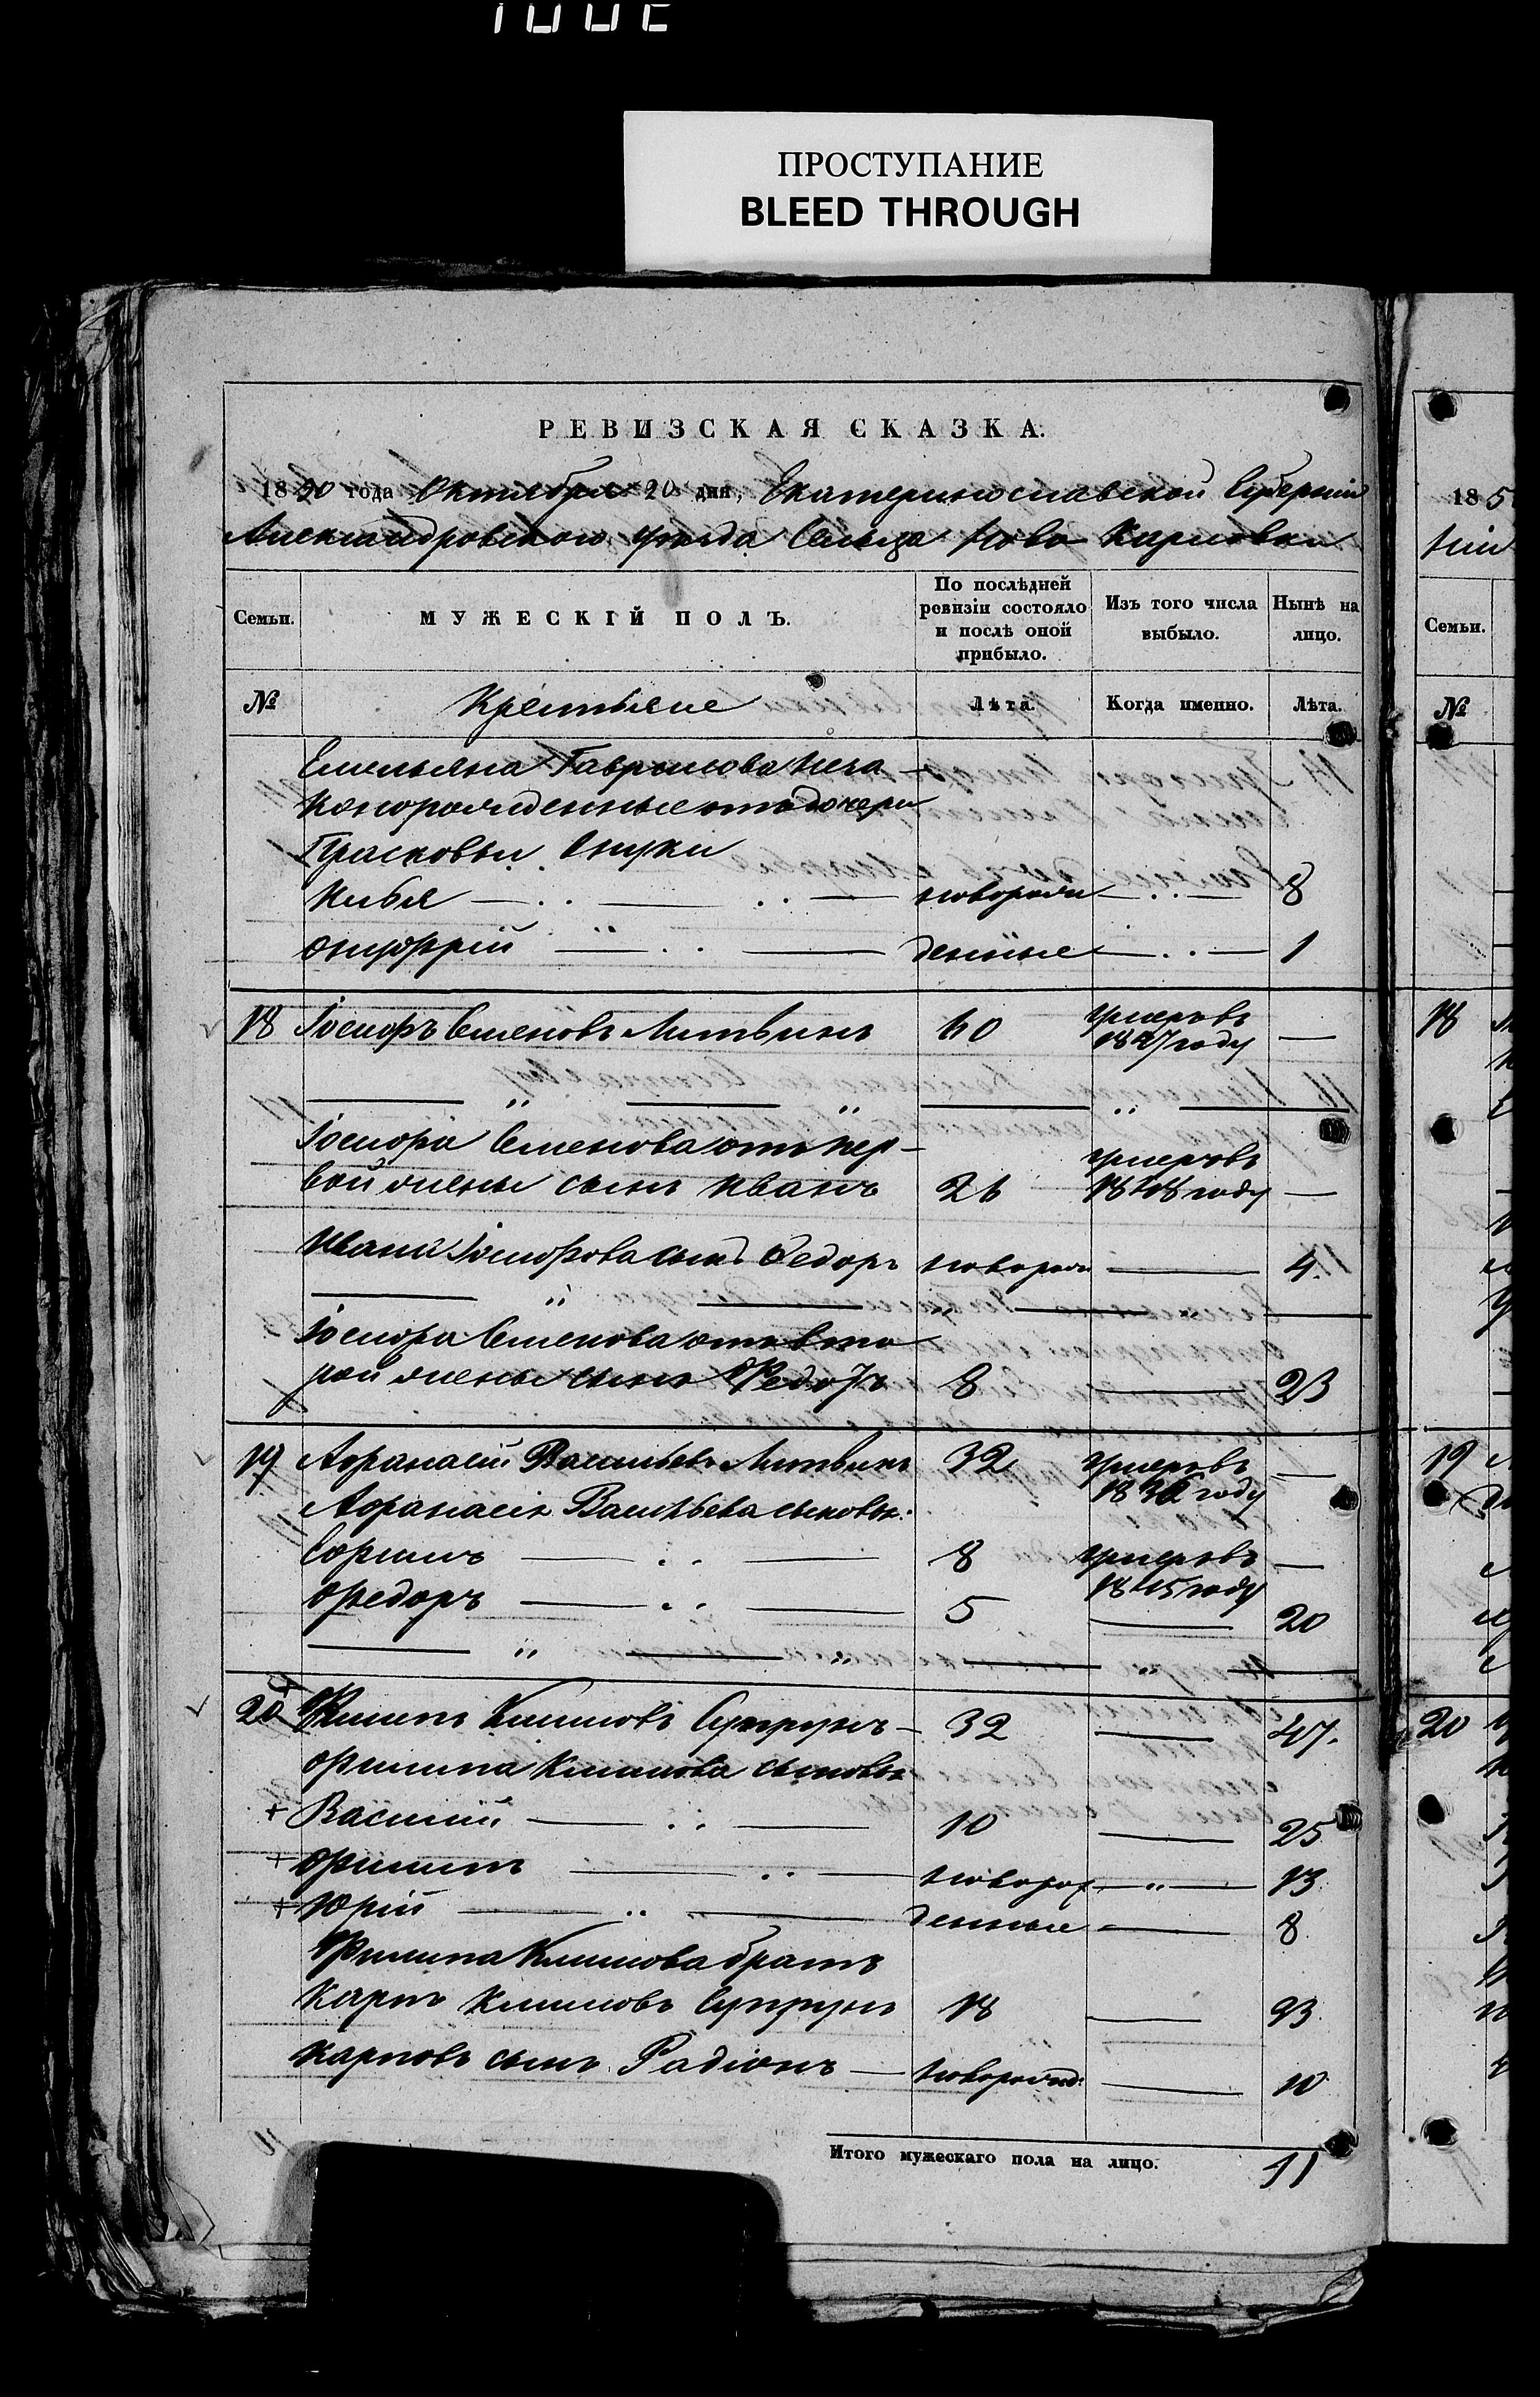 ПРОСТУПАНИЕ
BLEED THROUGH
РЕВИЗСКАЯ СКАЗКА.
1850 года Октября 20 дня, Екатеринославской Губернии
Александровского уезда Сельца Ново Карловки
Семьи. МУЖЕСКІЙ ПОЛЪ. По послѣдней ревизіи состояло и послѣ оной прибыло. Изъ того числа выбыло. Нынѣ на лицо.
№ Крестьяне Лѣта. Когда именно. Лѣта.
Емельяна Гаврилова неза-
конорожденные отъ дочери
Прасковьи внуки
Илья новорож 8
Онуфрій денные 1
18 Іосифъ Семеновъ Литвинъ 60 умеръ въ
1847 году —
Іосифа Семенова отъ пер-
вой жены сынъ Иванъ 26 умеръ въ
1848 году —
Ивана Іосифова сынъ Федоръ новорож 4.
Іосифа Семенова отъ вто
рой жены сынъ Федоръ 8 23
19 Афанасій Васильевъ Литвинъ 32 умеръ въ
1836 году —
Афанасія Васильева сыновья:
Софронъ 8 умеръ въ
1845 году —
Федоръ 5 20
20 Филипъ Климовъ Супрунъ — 32 47.
Филипа Климова сыновья
+ Василій 10 25
+ Филипъ новорож 13.
+ Юрій денные 8.
Филипа Климова братъ
Карпъ Климовъ Супрунъ 18 33.
Карповъ сынъ Радіонъ — новорожд: 10
Итого мужескаго пола на лицо. 11
185
Семьи.
№
18
19
20